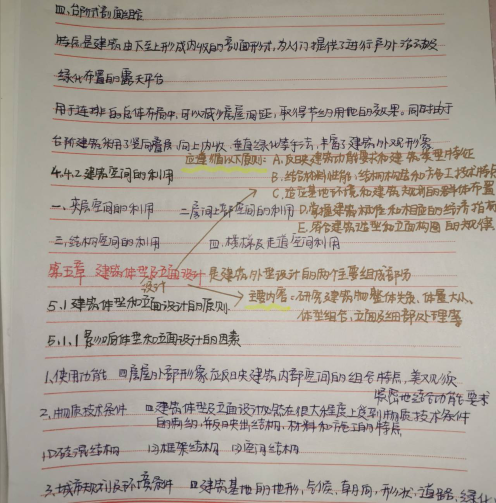 四、台阶式剖面组合
特点是建筑由下至上形成内收的剖面形式,为人们提供了进行户外活动及
绿化布置的露天平台
用于连排的总体布局中,可以减少房屋间距,取得节约用地的效果。同时由于
台阶建筑采用了竖向叠层、向上内收、垂直绿化等手法,丰富了建筑外观形象
应遵循以下原则: A.反映建筑功能要求和建筑类型特征
4.4.2建筑空间的利用
B.结合材料性能、结构构造和施工技术特点
C.适应基地环境和建筑规划的群体布置
一、夹层空间的利用 二、房间上部空间的利用
D.掌握建筑标准和相应的经济指标
E.符合建筑造型和立面构图的规律
三、结构空间的利用 四、楼梯及走道空间利用
第五章 建筑体型及立面设计 是建筑外型设计的两个主要组成部分
设计
主要内容:研究建筑物整体失象、体量大小、
5.1建筑体型和立面设计的原则
体型组合,立面及细部处理等
5.1.1影响体型和立面设计的因素
1、使用功能 四房屋外部形象应反映建筑内部空间的组合特点,美观必须
紧密地结合功能要求
2、物质技术条件 四建筑体型及立面设计必然在很大程度上受到物质技术条件
的制约,并反映出结构、材料和施工的特点
(1)砼混结构 (2)框架结构 (3)空间结构
3、城市规划及环境条件 四建筑基地的地形,气候,朝向,形状,道路,绿化